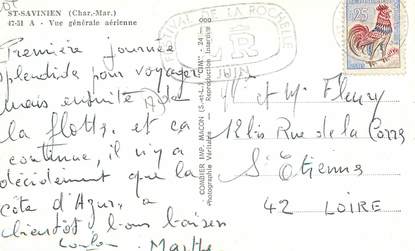 ST-SAVINIEN (Char.-Mar.)
47-51 A - Vue générale aérienne
Première journée
splendide pour voyager
mais ensuite de
la flotte, et ça
continue, il n'y a
décidément que la
côte d'Azur, à
bientôt bons baisers
Marthe
COMBIER IMP. MACON (S.-et-L.) "CIM"
Photographie Véritable - Reproduction Interdite
FESTIVAL DE LA ROCHELLE
JUIN
25
Mr et Me Fleury
12 bis Rue de la
St Etienne
42 LOIRE